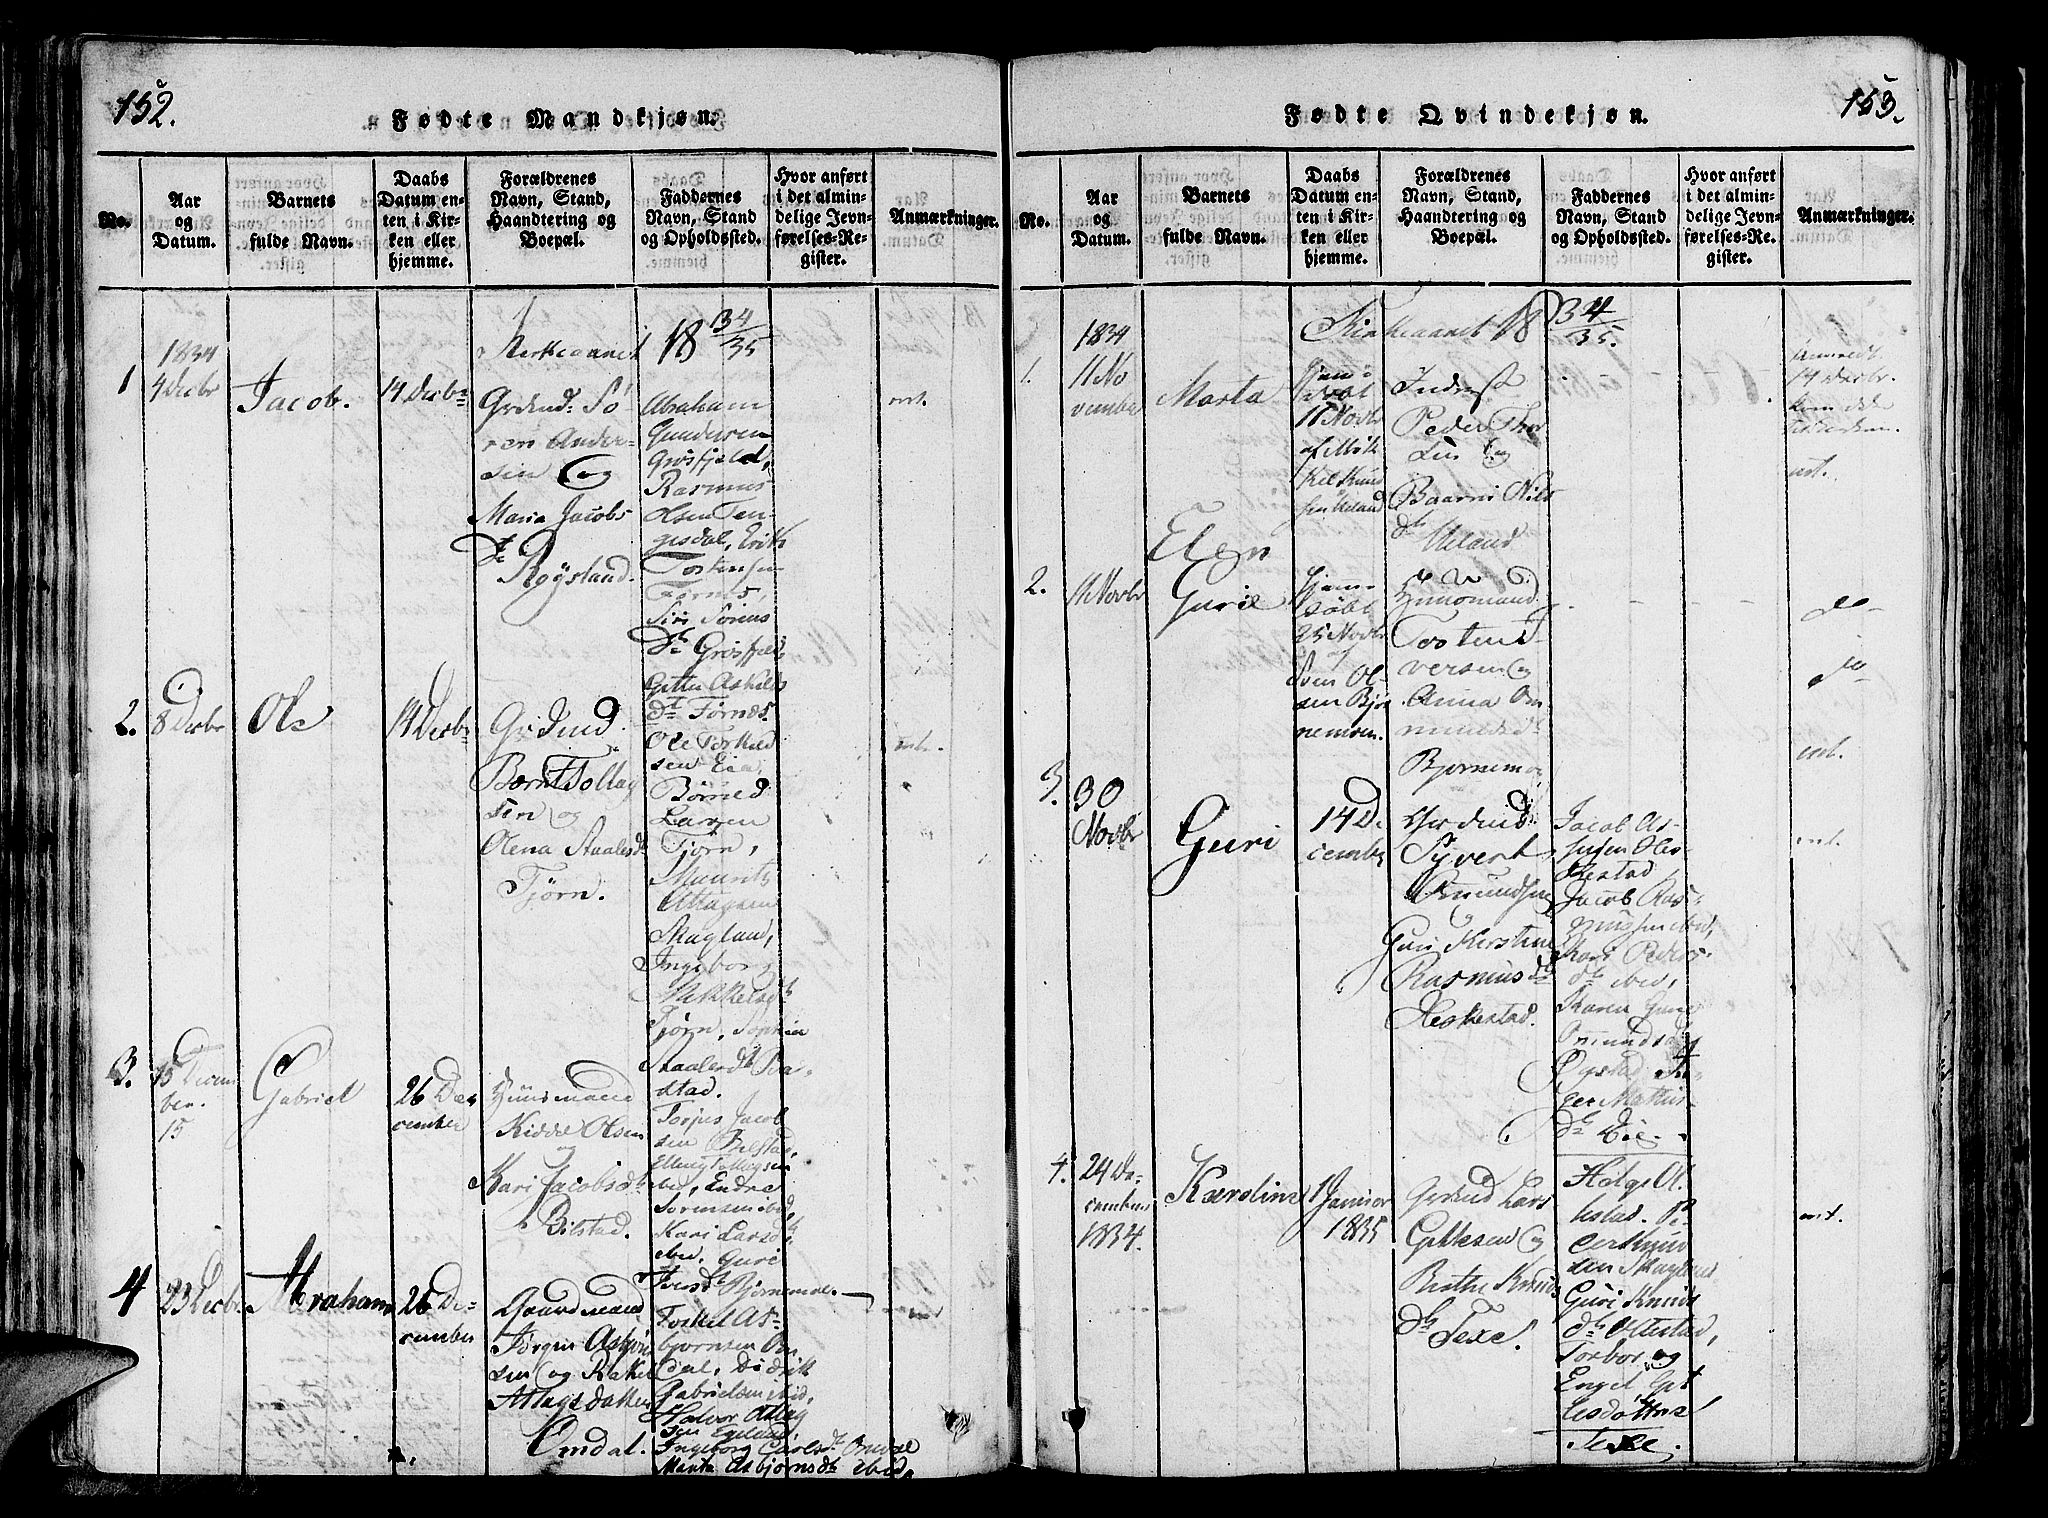 152.
Fødte Mandkjøn.
No.
Aar og Datum.
Barnets fulde Navn.
Daabs Datum enten i Kirken eller hjemme.
Forældrenes Navn, Stand, Haandtering og Boepæl.
Faddernes Navn, Stand og Opholdssted.
Hvor anført i det almindelige Jevnførelses-Register.
Anmærkninger.
Kirkeaaret 18 34/35
1
1834
4 Decbr
Jacob.
14 Decbr
Grdmd. Sø-
ren Ander-
sen og
Maria Jacobs
Dtr
Røysland.
Abraham
Gundersen
Grøsfjeld,
Rasmus
Olsen Ten-
gesdal, Erik
Tostensen
Tørnes,
Siri Sørens
Dtr Grøsfjeld
Gitte Askilds
dt Tørnes.
2.
8 Decbr
Ole
14 Decbr
Grdmd.
Bernt Tollag
sen og
Olena Staalesd
Tjørn.
Ole Torkild
sen Eia,
Børild
Larsen
Tjørn,
Maurits
Attagsen
Skagland,
Ingeborg
Mikkelsdt
Tjørn, Sophia
Staalesdt Ba-
stad.
3.
15 Decem
ber.
15
Gabriel
26 De
cember
Huusmand
Kiddel Olsen
og
Kari Jacobsdt
Bilstad.
Torjus Jacob
sen Bilstad,
Elling Tollagsen
ibd, Endre
Sørensen ibid,
Kari Larsdt
ibid, Guri
Iversdt Bjørnemoe.
4
23 Decbr.
Abraham
26 De-
cember
Gaardmand
Jørgen Asbjørn
sen og Rakel
Attagsdatter
Omdal.
Torkel As-
bjørnsen Om
dal, Didrik
Gabrielsen ibid,
Halvor Attag
sen Egeland,
Ingeborg Carlsdt Omdal
Marta Asbjørnsdt ibid.
153.
Fødte Qvindekjøn.
No.
Aar og Datum.
Barnets fulde Navn.
Daabs Datum enten i Kirken eller hjemme.
Forældrenes Navn, Stand, Haandtering og Boepæl.
Faddernes Navn, Stand og Opholdssted.
Hvor anført i det almindelige Jevnførelses-Register.
Anmærkninger.
Kirkeaaret 18 34/35.
1.
1834
11 No
vember
Marta
hjem
døbt
11 Novbr
af Mik
kel Knud
sen Ueland
Inderst
Peder Thor
sen og
Baarni Nils
dtr
Ueland
14 Decbr.
kom ikke
2.
11 Novbr
Elen
Gurie
hjem
døbt
25 Novbr
af
Sven Ol-
sen Bjør
nemoen.
Huusmand
Tosten I-
versen og
Anna Om
mundsd
Bjørnemo
do
do
3.
30
Novbr
Guri
14 De
cember
Gardmd
Syvert
Omundsen
Guri Kirstine
Rasmusdt
Heskestad.
Jacob As-
Restad,
Jacob Ras-
mussen ibid,
Kari Peders-
dt ibid,
Karen Guri
Omundsdt
Øgstad, In-
ger Mathis-
dt Eie.
4.
24 De-
cember
1834.
Karoline
1 Januar
1835
Grdmd Lars
Gitlesen og
Berthe Knuds
dtr
Texe.
Helge Ol-
lestad, Pe-
der Knud
sen Skagland
Guri Knuds
dt Ollestad,
Torbor og
Engel Git
lesdøttre
Texe.